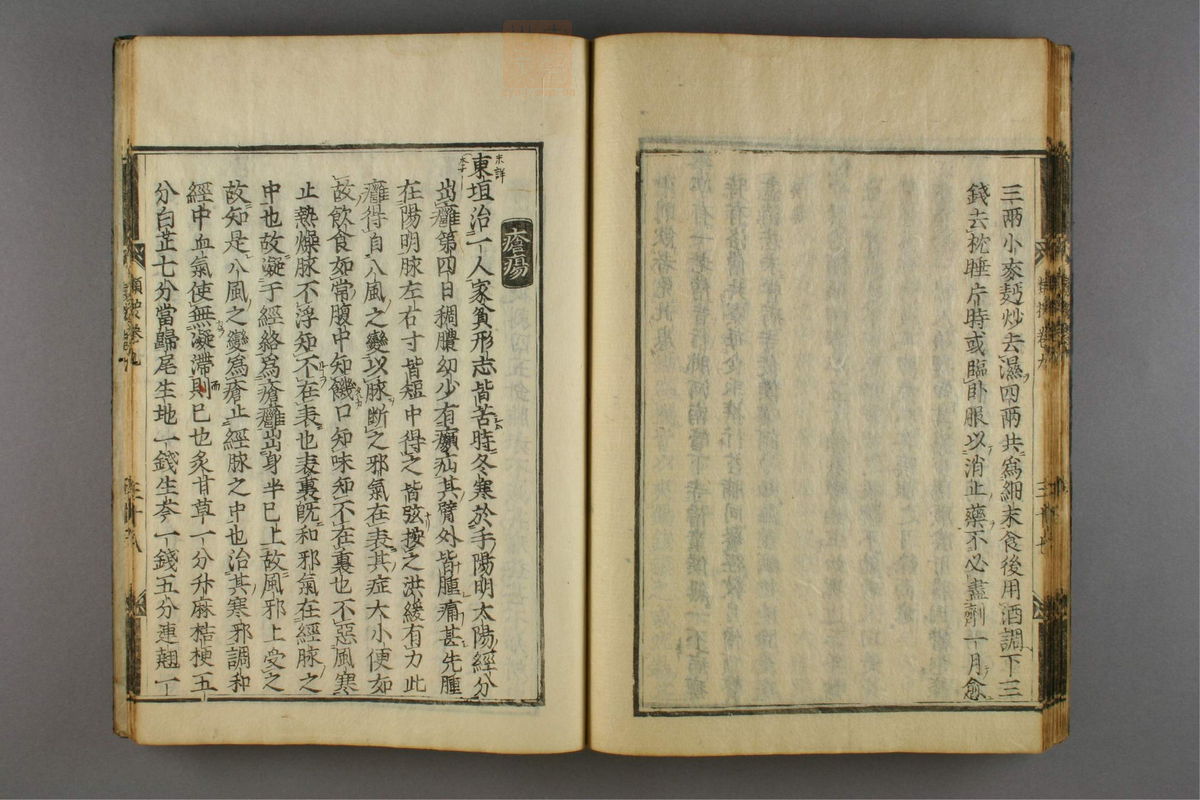 三兩小麥麪炒去濕四兩共爲細末食後用酒調下三
錢去枕睡片時或臨卧服以消止藥不必盡劑一月愈
瘡瘍
東垣治一人家貧形志皆苦時冬寒於手陽明太陽經分
出癰第四日稠膿幼少有癩疝其臂外皆腫痛甚先腫
在陽明脉左右寸皆短中得之皆弦按之洪緩有力此
癰得自八風之變以脉斷之邪氣在表其症大小便如
故飲食如常腹中知饑口知味知不在裏也不惡風寒
止熱燥脉不浮知不在表也表裏既和邪氣在經脉之
中也故凝于經絡爲瘡癰出身半已上故風邪上受之
故知是八風之變爲瘡止經脉之中也治其寒邪調和
經中血氣使無凝滯則已也炙甘草一分升麻桔梗五
分白芷七分當歸尾生地一錢生芩一錢五分連翹一